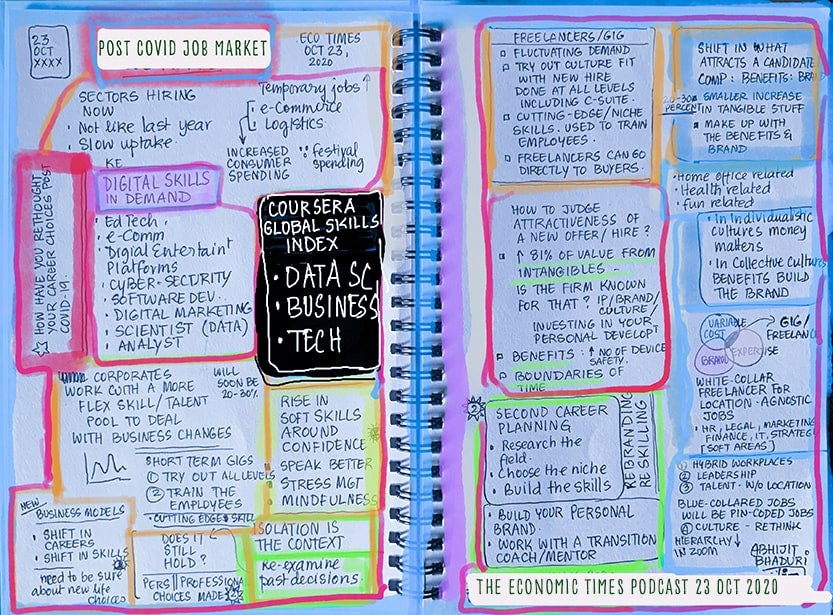 23
OCT
XXXX
POST COVID JOB MARKET
ECO TIMES
OCT 23,
2020
SECTORS HIRING
NOW
• Not like last year
• Slow uptake
Temporary jobs ↑
e-Commerce
Logistics
INCREASED
CONSUMER
SPENDING
∵ festival
spending
HOW HAVE YOU RETHOUGHT
YOUR CAREER CHOICES POST
COVID-19.
DIGITAL SKILLS
IN DEMAND
• Ed Tech,
• e-Comm
• Digial Entertaint
Platforms
• CyBER-SECURITY
• SOFTWARE DEV..
• DIGITAL MARKETING
• SCIENTIST (DATA)
• ANALYST
COURSERA
GLOBAL SKILLS
INDEX
• DATA SC
• BUSINESS
• TECH
CORPORATES
WORK WITH A MORE
FLEX SKILL/TALENT
POOL TO DEAL
WITH BUSINESS CHANGES
WILL
SOON BE
20-30%
SHORT TERM GIGS
① TRY OUT ALL LEVELS
② TRAIN THE
EMPLOYEES
• CUTTING EDGE SKILL
RISE IN
SOFT SKILLS
AROUND
CONFIDENCE
SPEAK BETTER
STRESS MGT
MINDFULNESS
NEW
BUSINESS MODELS
• SHIFT IN
CAREERS
• SHIFT IN SKILLS
need to be sure
about new life
choices
DOES IT
STILL
HOLD?
PERS || PROFESSIONAL
CHOICES MADE
ISOLATION IS
THE CONTEXT
Re-examine
past decisions.
FREELANCERS/GIG
▫ FLUCTUATING DEMAND
▫ TRY OUT CULTURE FIT
WITH NEW HIRE
DONE AT ALL LEVELS
INCLUDING C-SUITE.
▫ CUTTING-EDGE/NICHE
SKILLS. USED TO TRAIN
EMPLOYEES.
▫ FREELANCERS CAN GO
DIRECTLY TO BUYERS.
HOW TO JUDGE
ATTRACTIVENESS OF
A NEW OFFER/HIRE?
▫ ↑ 31% OF VALUE FROM
INTANGIBLES
IS THE FIRM KNOWN
FOR THAT? IP/BRAND/
CULTURE/
INVESTING IN YOUR
PERSONAL DEVELOPT
▫ BENEFITS: ↑ NO OF DEVICE
SAFETY.
▫ BOUNDARIES OF
TIME
SECOND CAREER
PLANNING
• Research the
field.
• Choose the niche
• Build the skills
REBRANDING
RESKILLING
• BUILD YOUR PERSONAL
BRAND.
• WORK WITH A TRANSITION
COACH/MENTOR
SHIFT IN WHAT
ATTRACTS A CANDIDATE
COMP: BENEFITS: BRAND
20-30
PERCENT
SMALLER INCREASE
IN TANGIBLE STUFF
▪ MAKE UP WITH
THE BENEFITS &
BRAND
• Home office related
• Health related
• fun related
• In Individualistic
cultures money
matters
• In Collective Cultures
BENEFITS BUILD
THE BRAND
VARIABLE
COST
BRAND
EXPERTISE
GIG/
FREELANC
WHITE-COLLAR
FREELANCER FOR
LOCATION-AGNOSTIC
JOBS
• HR, LEGAL, MARKETING
FINANCE, IT, STRATEGY
[SOFT AREAS]
① HYBRID WORKPLACES
② LEADERSHIP
③ TALENT - W/O LOCATION
BLUE-COLLARED JOBS
WILL BE PIN-CODED JOBS
④ CULTURE - RETHINK
HIERARCHY ↓
IN ZOOM
ABHIJIT
BHADURI
THE ECONOMIC TIMES PODCAST 23 OCT 2020